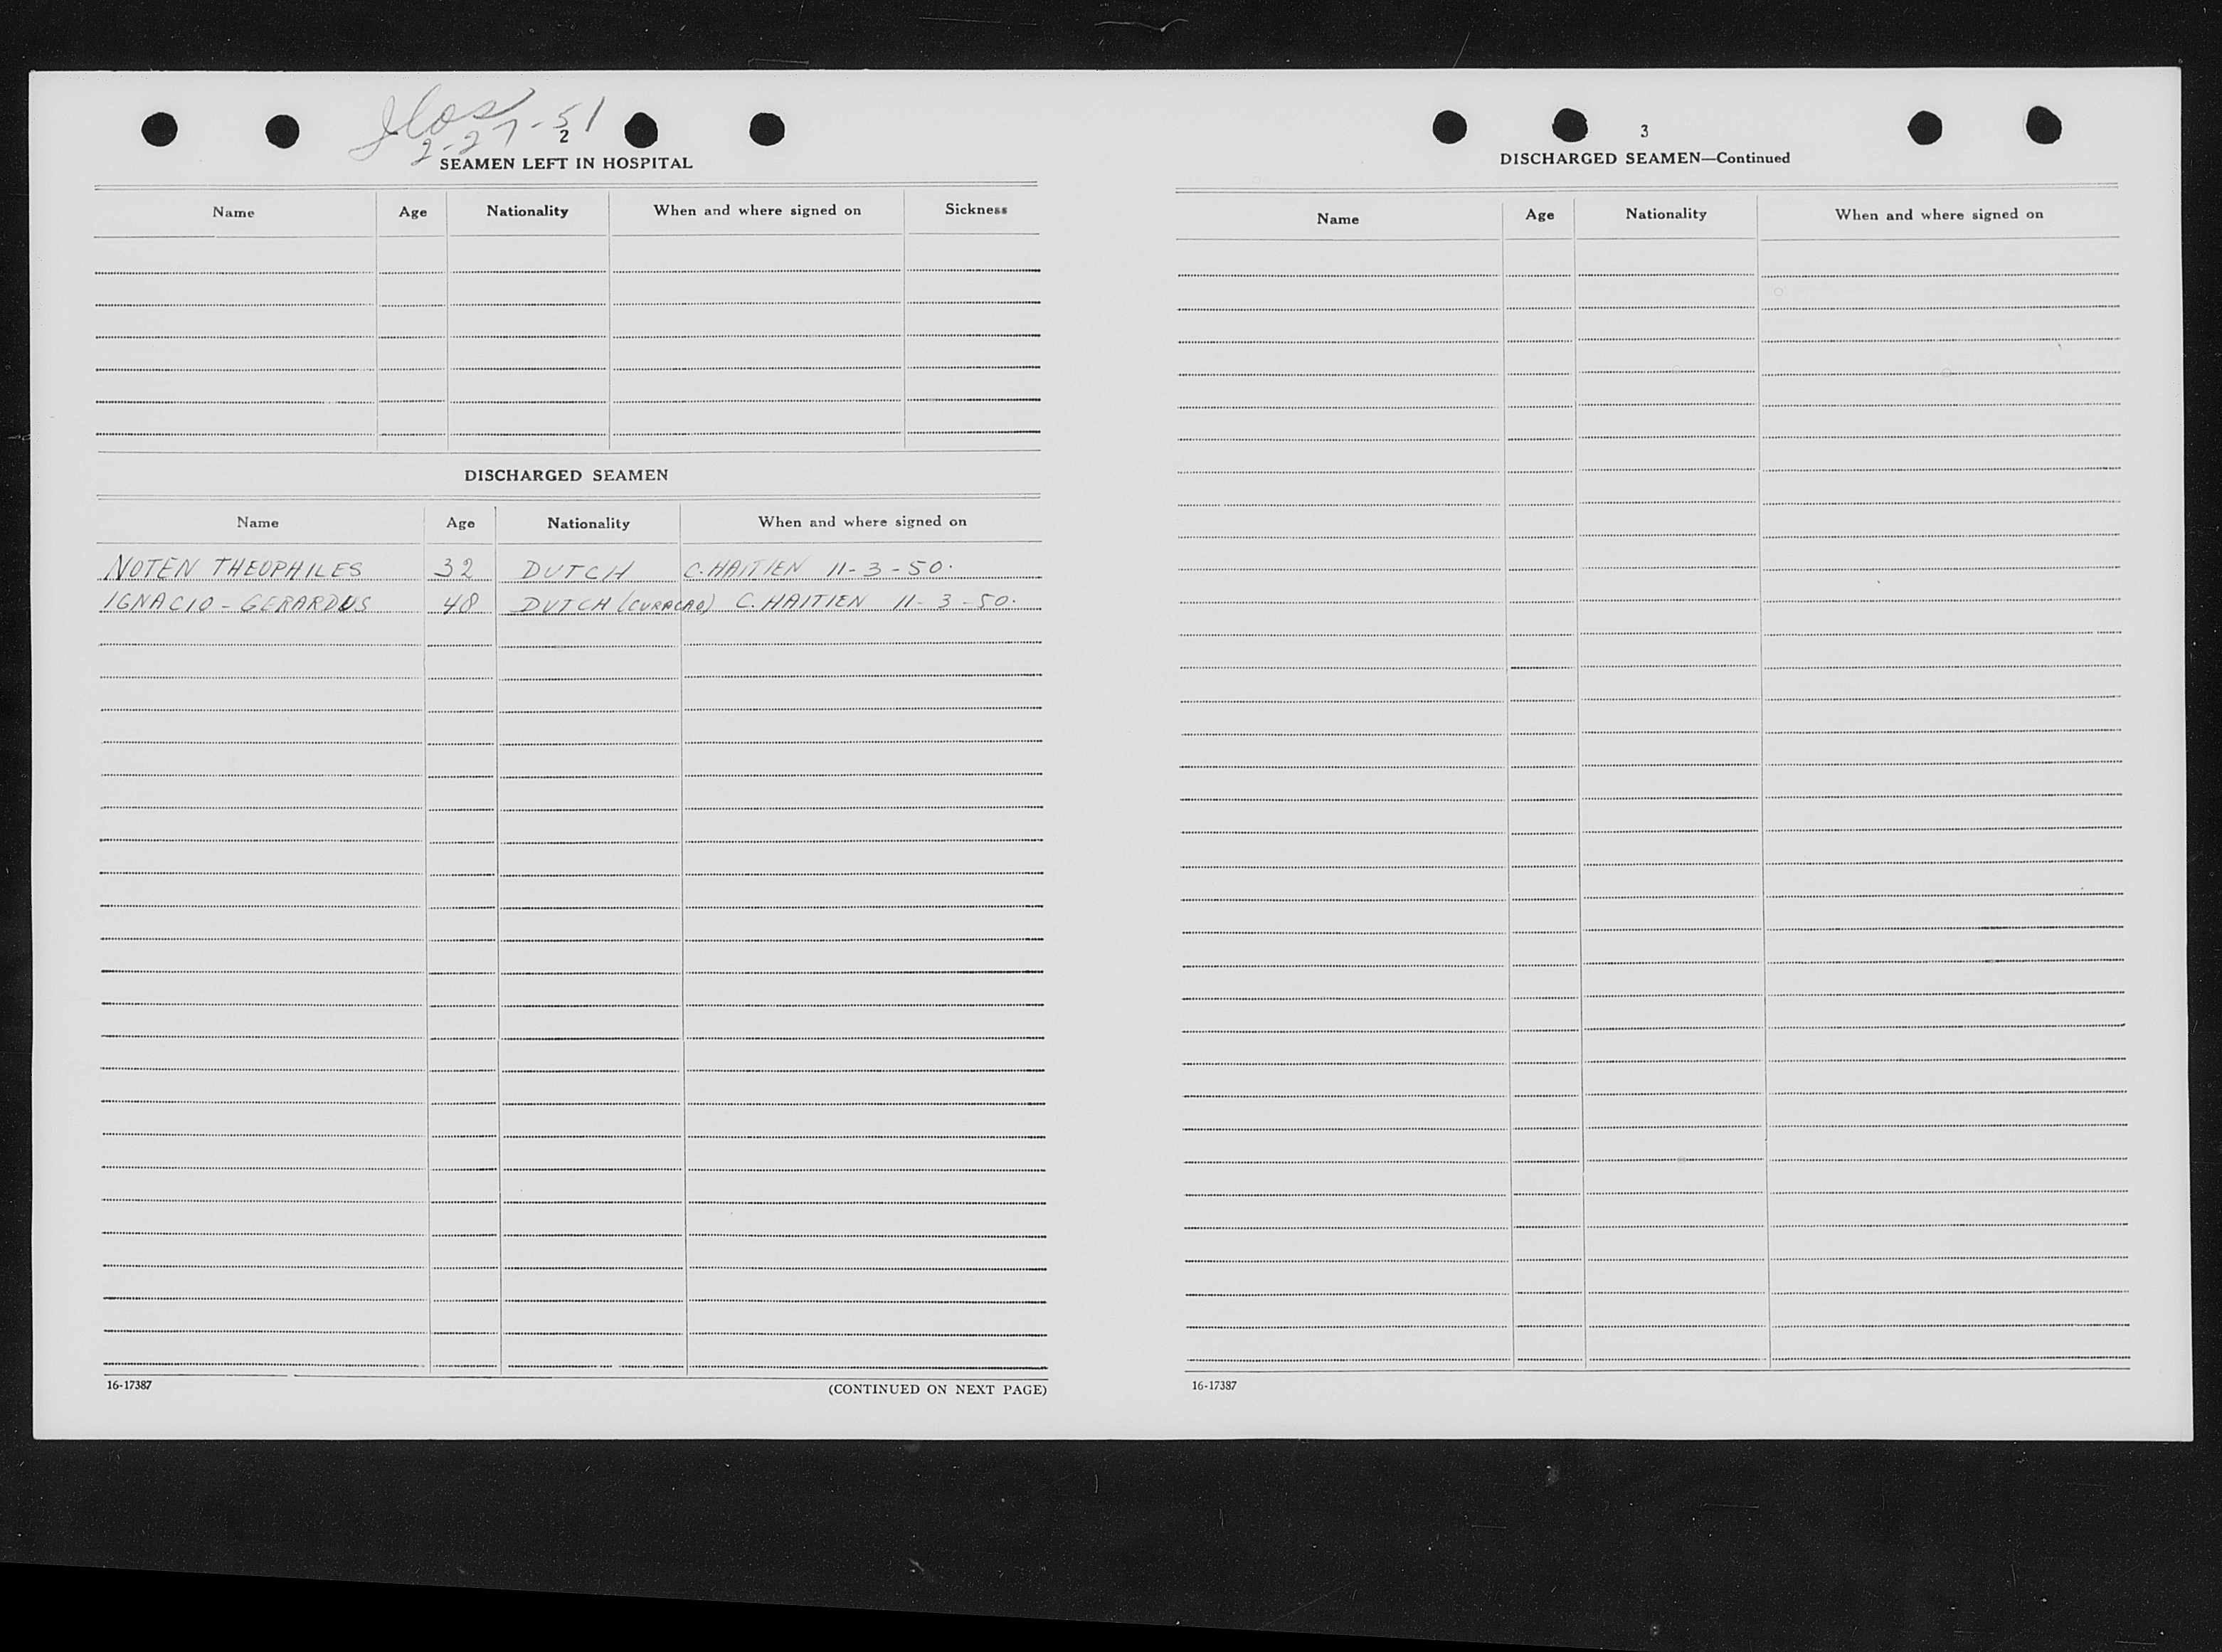 2-27-51
2
SEAMEN LEFT IN HOSPITAL
Name Age Nationality When and where signed on Sickness
DISCHARGED SEAMEN
Name Age Nationality When and where signed on
NOTEN THEOPHILES 32 DUTCH C. HAITIEN 11-3-50.
IGNACIO - GERARDUS 48 DUTCH (CURACAO) C. HAITIEN 11-3-50.
16-17387 (CONTINUED ON NEXT PAGE)
3
DISCHARGED SEAMEN—Continued
Name Age Nationality When and where signed on
16-17387